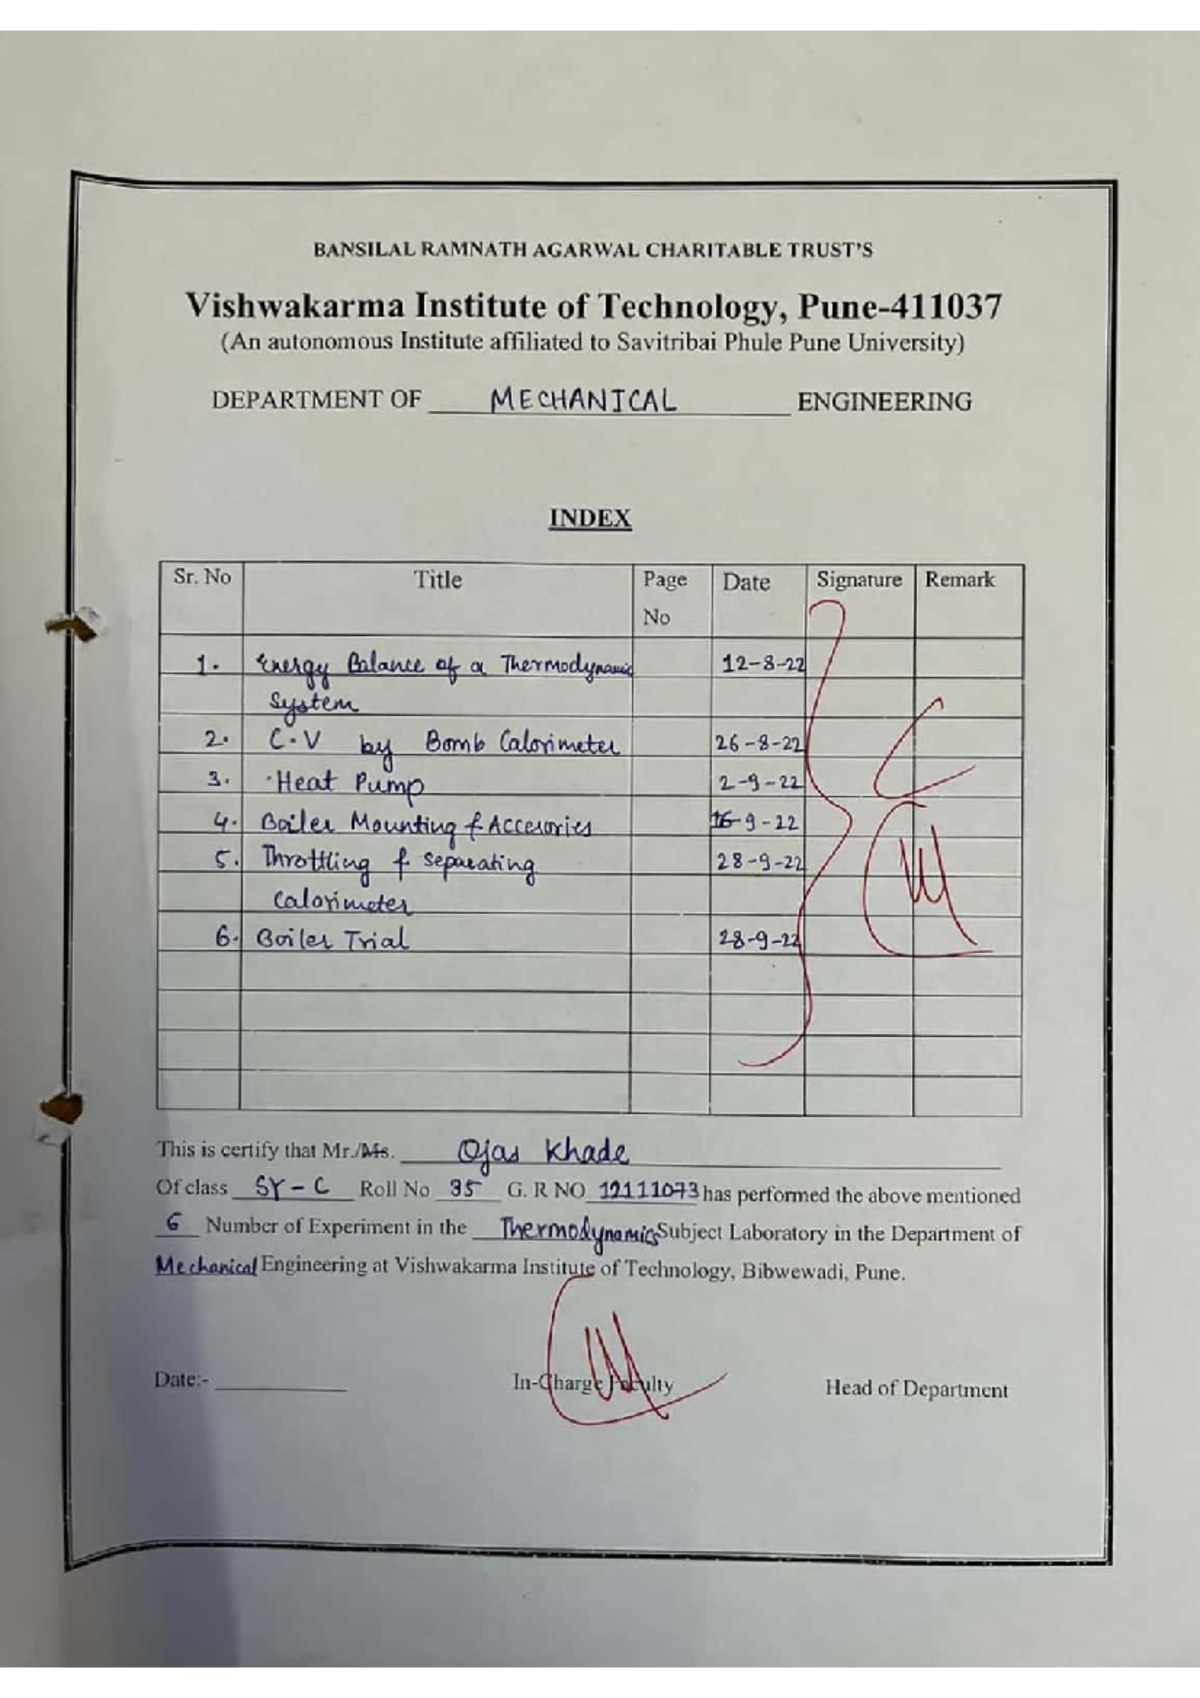 BANSILAL RAMNATH AGARWAL CHARITABLE TRUST'S
Vishwakarma Institute of Technology, Pune-411037
(An autonomous Institute affiliated to Savitribai Phule Pune University)
DEPARTMENT OF MECHANICAL ENGINEERING
INDEX
Sr. No Title Page No Date Signature Remark
1. Energy Balance of a Thermodynamic 12-8-22
System
2. C.V by Bomb Calorimeter 26-8-22
3. Heat Pump 2-9-22
4. Boiler Mounting & Accesories 16-9-22
5. Throttling & Separating 28-9-22
Calorimeter
6. Boiler Trial 28-9-22
This is certify that Mr./Ms. Ojas Khade
Of class SY-C Roll No 35 G. R NO 12111073 has performed the above mentioned
6 Number of Experiment in the Thermodynamics Subject Laboratory in the Department of
Mechanical Engineering at Vishwakarma Institute of Technology, Bibwewadi, Pune.
Date:- In-Charge Faculty Head of Department